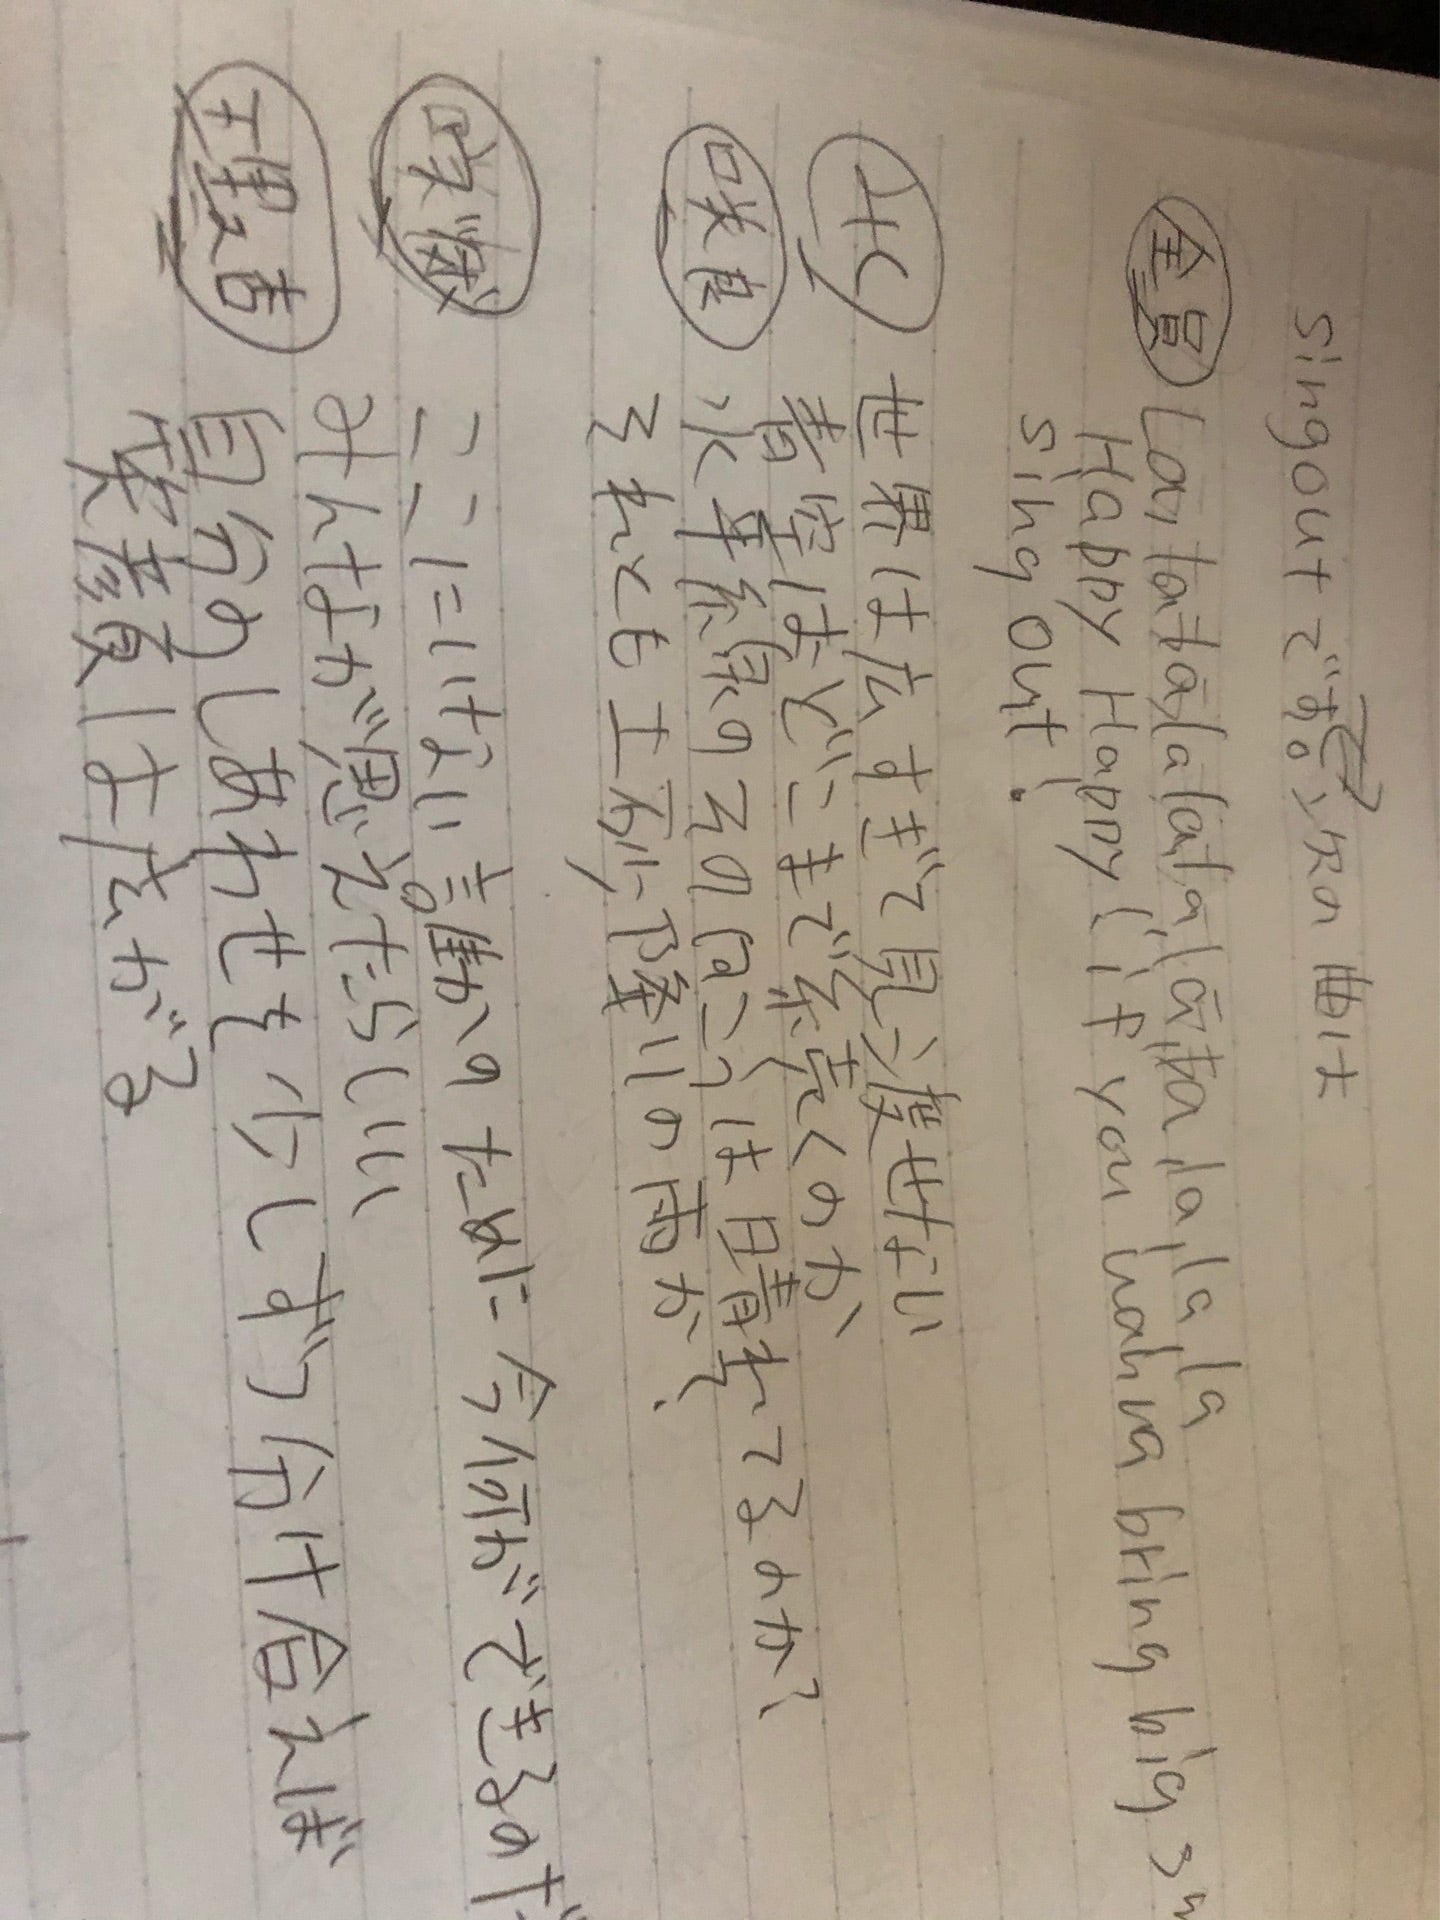 sing out でする。次の曲は
全員 La, la la la, la la, la la, la, la, la, la, la
Happy Happy! if you wanna bring big
sing out!
世界は広すぎて見渡せない
青空はどこまで続くのか
咲良 水平線のその向こうは晴れてるのか?
それとも土砂降りの雨か?
ここにはいない誰かのために今何ができるのだ
みんなが思えたらいい
自分のしあわせを少しずつ分け合えれば
笑顔はつながる